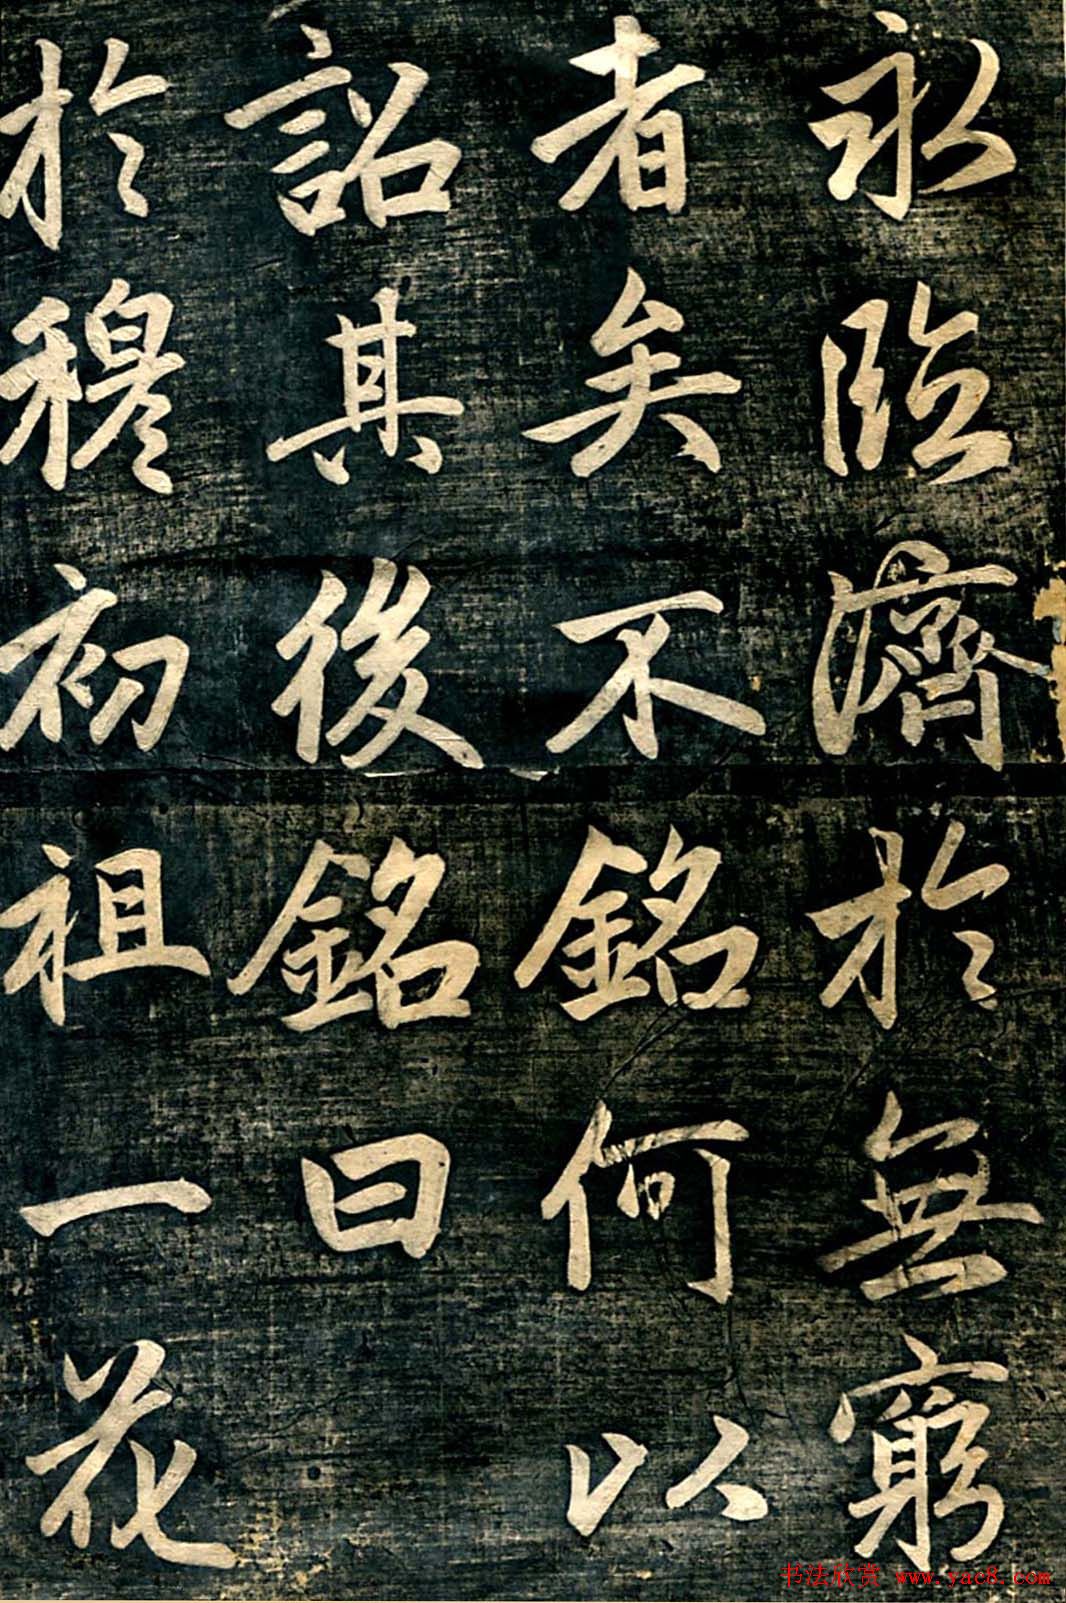 永臨濟於無窮
者矣不銘何以
詔其後銘曰
於穆初祖一花
书法欣赏 www.yac8.com